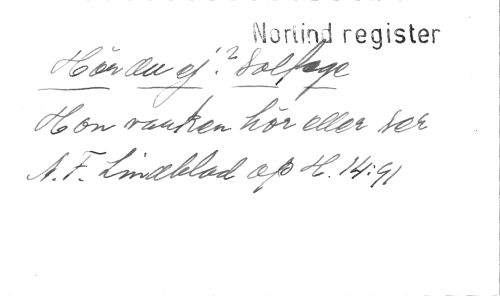 Norlind register
Hör du ej? Solfage
Hon vanken hör eller ser
A. F. Lindblad op H. 14:91